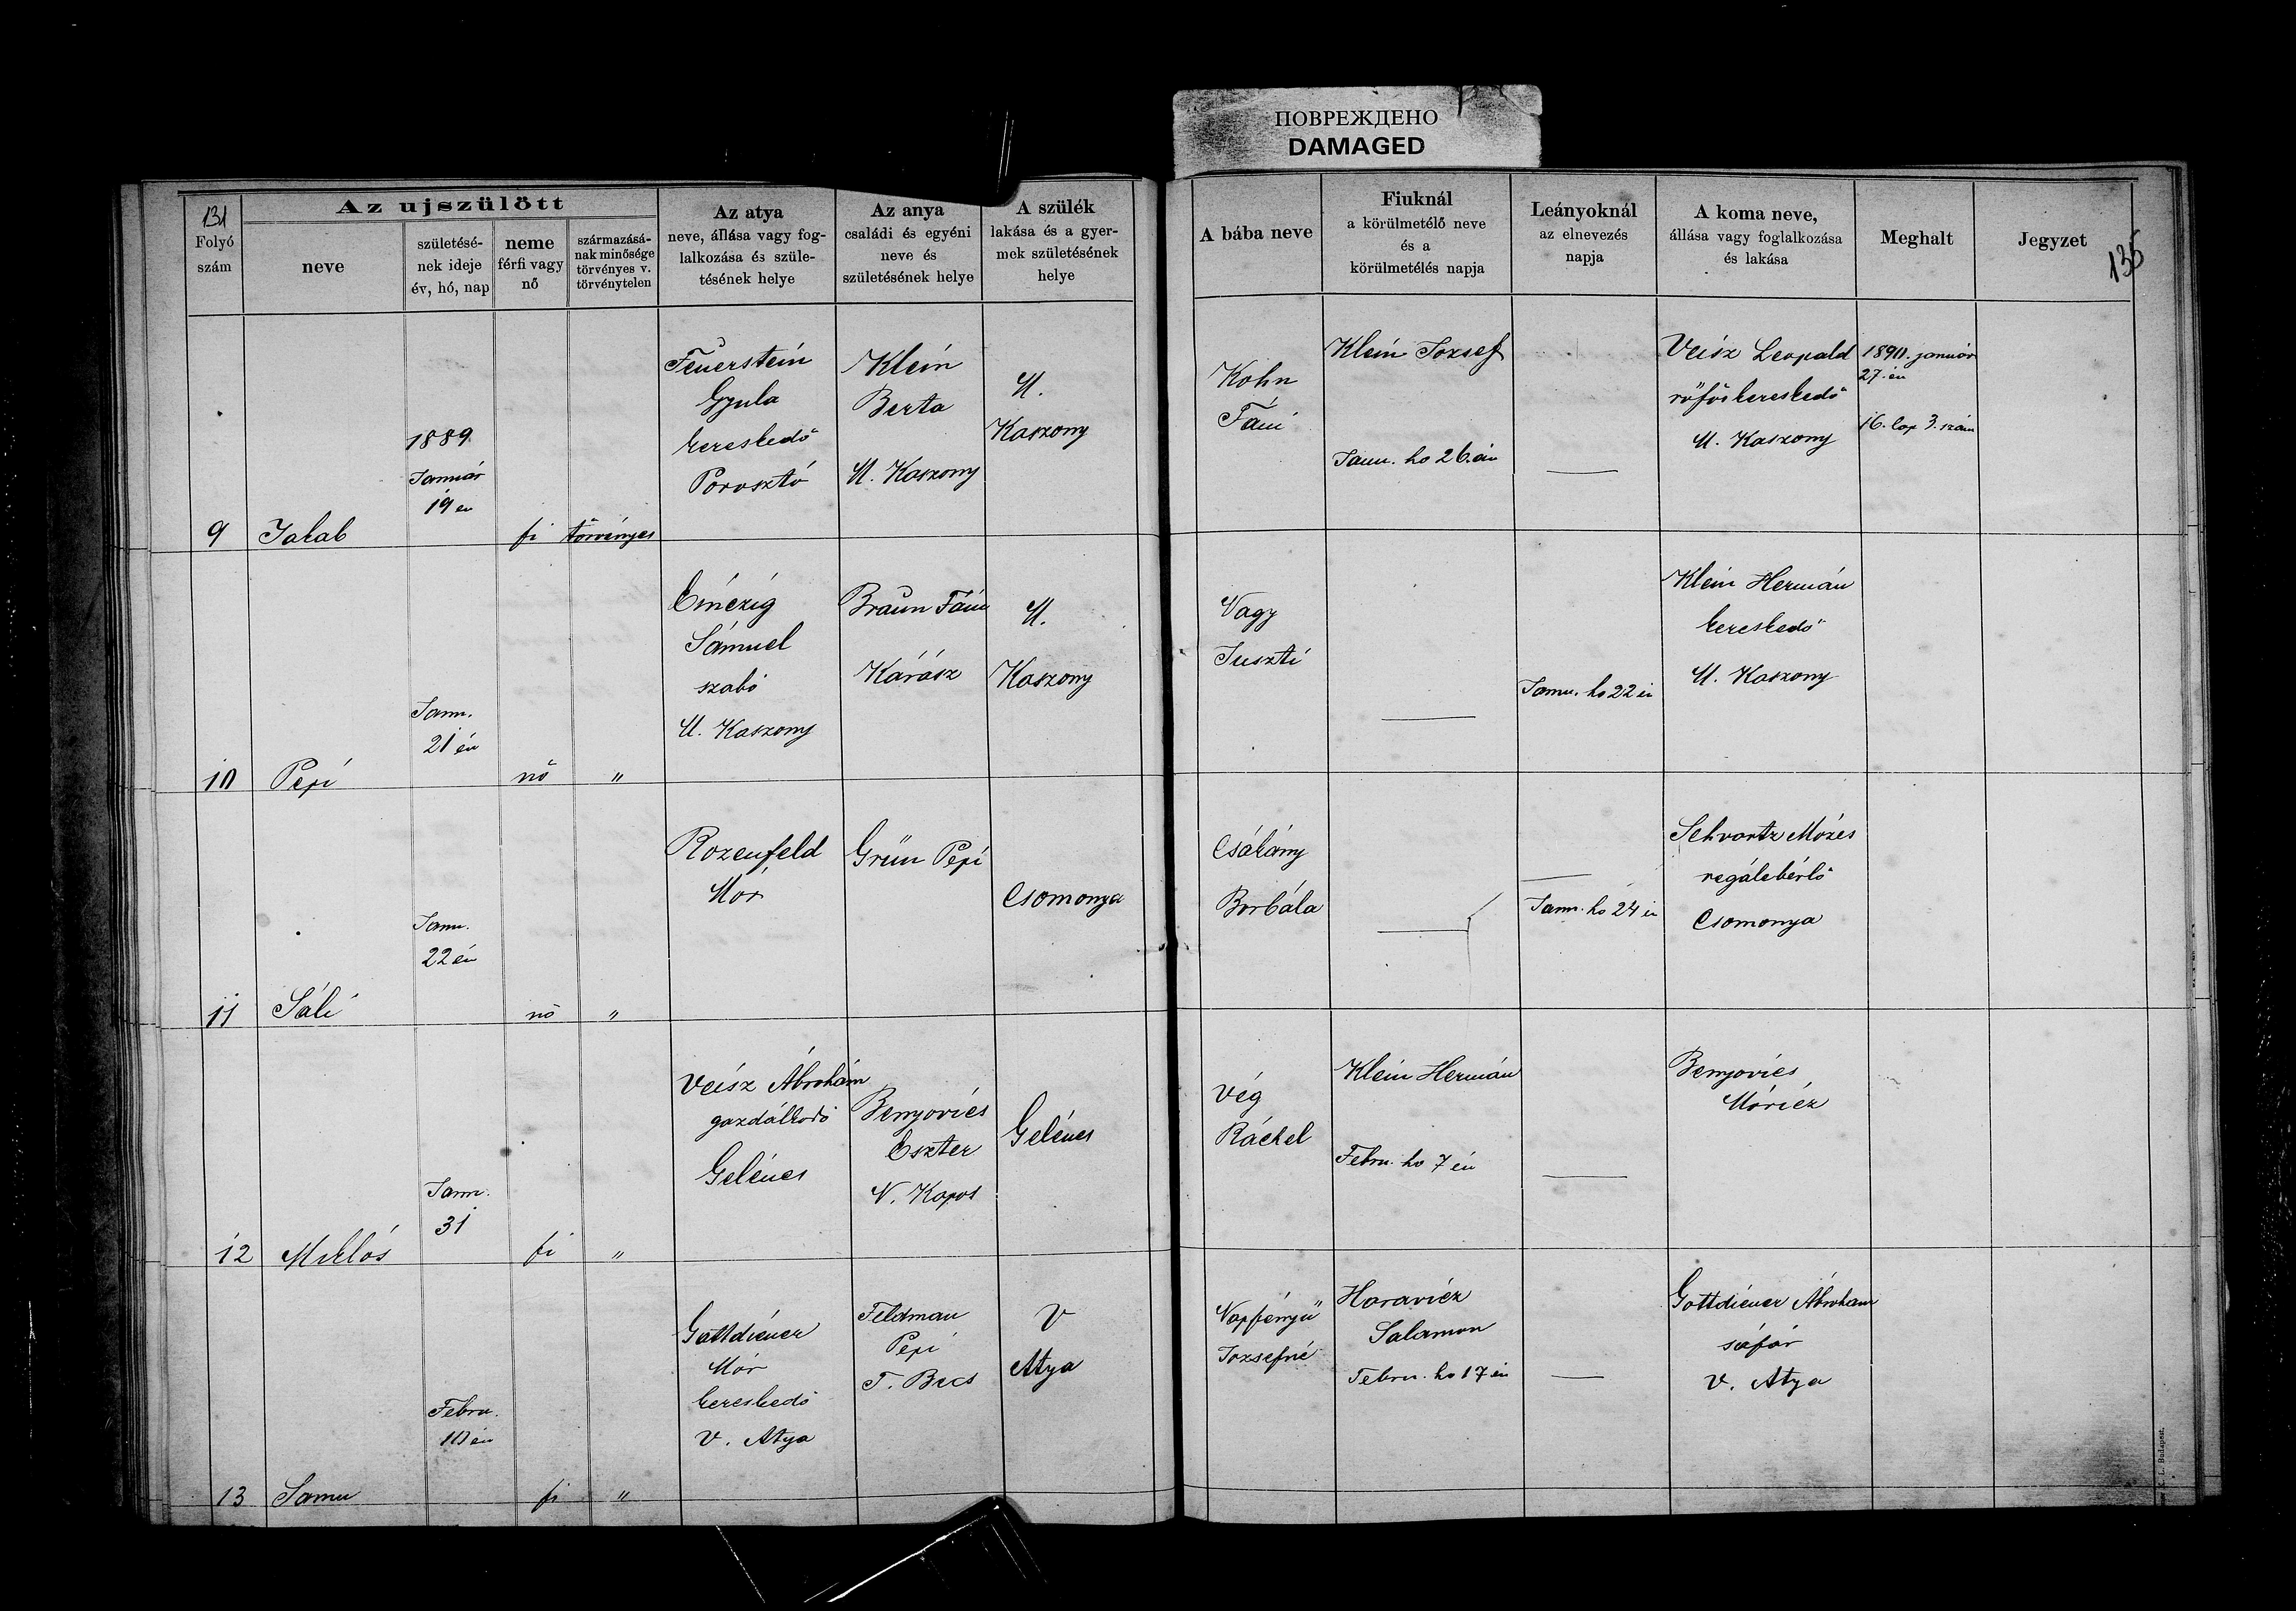 ПОВРЕЖДЕНО
DAMAGED
131
Az ujszülött
Folyó szám
neve
születésé-
nek ideje
év, hó, nap
neme
férfi vagy
nő
származásá-
nak minősége
törvényes v.
törvénytelen
Az atya
neve, állása vagy fog-
lalkozása és szüle-
tésének helye
Az anya
családi és egyéni
neve és
születésének helye
A szülék
lakása és a gyer-
mek születésének
helye
A bába neve
Fiuknál
a körülmetélő neve
és a
körülmetélés napja
Leányoknál
az elnevezés
napja
A koma neve,
állása vagy foglalkozása
és lakása
Meghalt
Jegyzet
135
9
Jakab
1889
Január
19 én
fi
törvényes
Feuerstein
Gyula
kereskedő
Porosztó
Klein
Berta
M. Kaszony
M.
Kaszony
Kohn
Fáni
Klein Jozsef
Jann. ho 26.án
Veisz Leopald
röfös kereskedő
M. Kaszony
1890. január
27.én
16. lap 3. szám
10
Pepi
Jann.
21 én
nő
"
Sámuel
szabó
M. Kaszony
Braun Fáni
Kárász
M.
Kaszony
Nagy
Juszti
Jann. ho 22 én
Klein Hermán
kereskedő
M. Kaszony
11
Sáli
Jann.
22 én
nő
"
Rozenfeld
Mór
Grün Pepi
Csomonya
Csákány
Borbála
Jann. ho 24 én
Schvartz Mózes
regálebérlő
Csomonya
12
Miklós
Jann.
31
fi
"
Veisz Ábrahám
gazdálkodó
Gelénes
Benyovics
Eszter
N. Kapos
Gelénes
Vég
Ráchel
Klein Hermán
Febru. ho 7 én
Benyovics
Móricz
13
Samu
Febru.
10 én
fi
"
Gottdiener
Mór
kereskedő
V. Atya
Feldman
Pepi
T. Becs
V
Atya
Napfényü
Jozsefné
Haravicz
Salamon
Febru. ho 17 én
Gottdiener Ábraham
sáfár
V. Atya